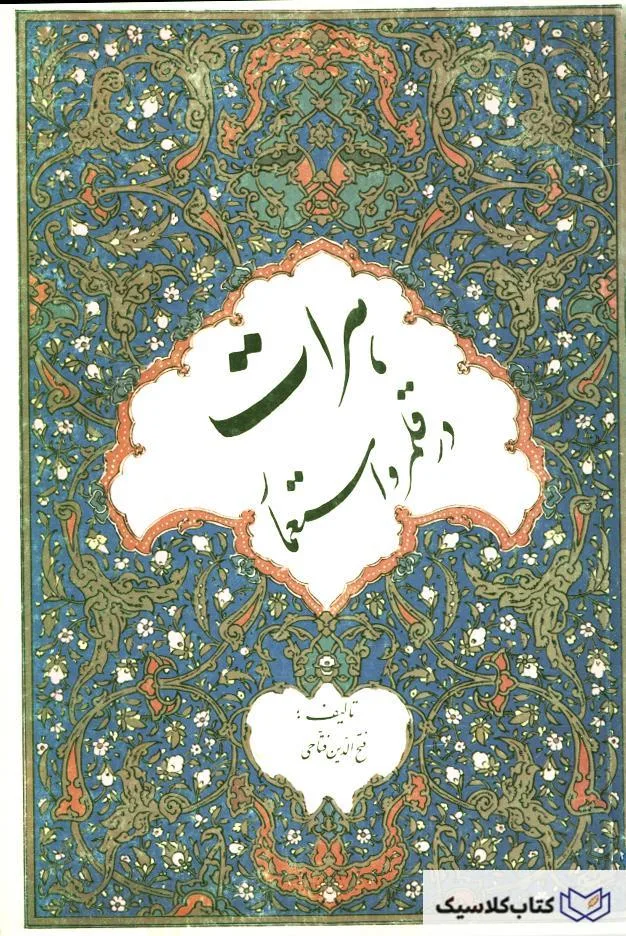 هرات
در قلمرو استعمار
تالیف :
فتح الدین فتاحی
کتاب کلاسیک